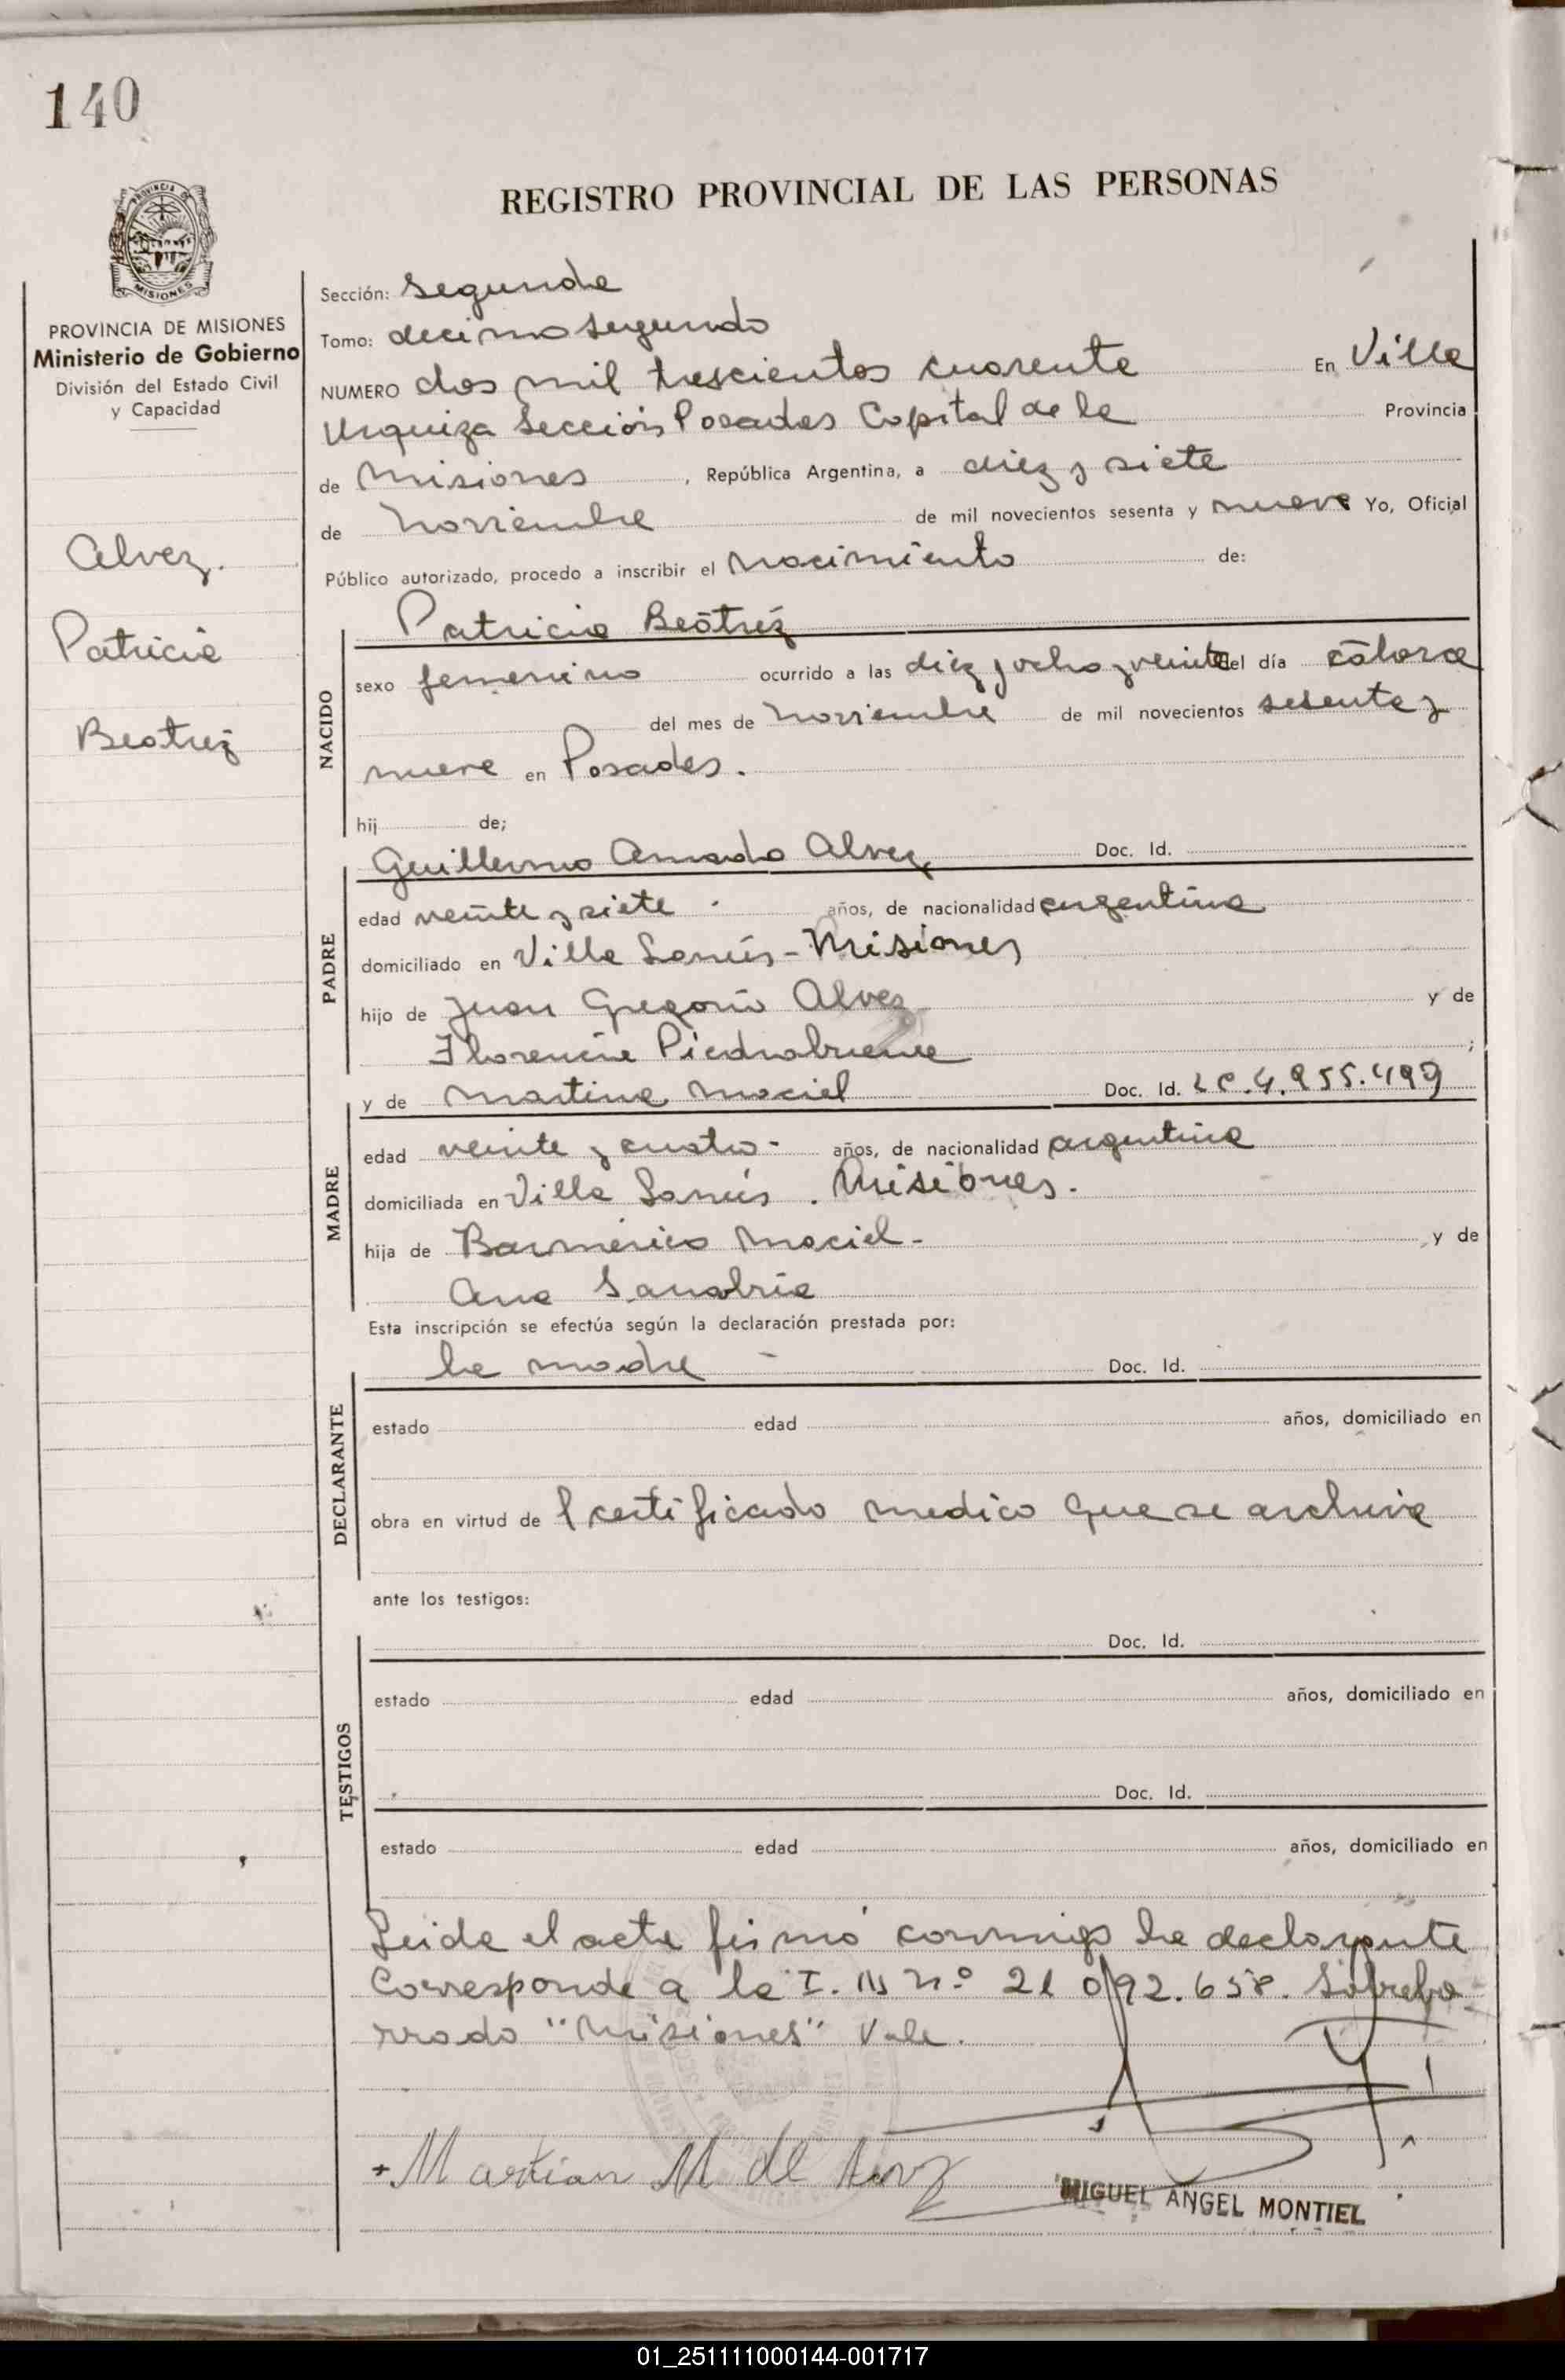 140
REGISTRO PROVINCIAL DE LAS PERSONAS
MISIONES
PROVINCIA DE MISIONES
Ministerio de Gobierno
División del Estado Civil
y Capacidad
Alvez.
Patricia
Beatriz
Sección: Segunda
Tomo: decimo segundo
NUMERO dos mil trescientos cuarenta En Villa
Urquiza Sección Posadas Capital de la Provincia
de Misiones , República Argentina, a diez y siete
de noviembre de mil novecientos sesenta y nueve Yo, Oficial
Público autorizado, procedo a inscribir el nacimiento de:
NACIDO
Patricia Beatriz
sexo femenino ocurrido a las diez y ocho y veinte del día catorce
del mes de noviembre de mil novecientos sesenta y
nueve en Posadas.
hij de;
PADRE
Guillermo Amado Alvez Doc. Id.
edad veinte y siete . años, de nacionalidad argentina
domiciliado en Villa Lanús - Misiones
hijo de Juan Gregorio Alvez y de
Florencia Piedrabuena ;
MADRE
y de Martina Maciel Doc. Id. LC 4.955.499
edad veinte y cuatro - años, de nacionalidad argentina
domiciliada en Villa Lanús . Misiones.
hija de Maciel - y de
Ana Sanabria
Esta inscripción se efectúa según la declaración prestada por:
DECLARANTE
la madre - Doc. Id.
estado edad años, domiciliado en
obra en virtud de l certificado medico que se archiva
ante los testigos:
TESTIGOS
Doc. Id.
estado edad años, domiciliado en
Doc. Id.
estado edad años, domiciliado en
Leida el acta firmó conmigo la declarante
Corresponde a la I. N nº 21 092.658. Sobrebo-
rrado "Misiones" Vale.
M de
MIGUEL ANGEL MONTIEL
01_251111000144-001717